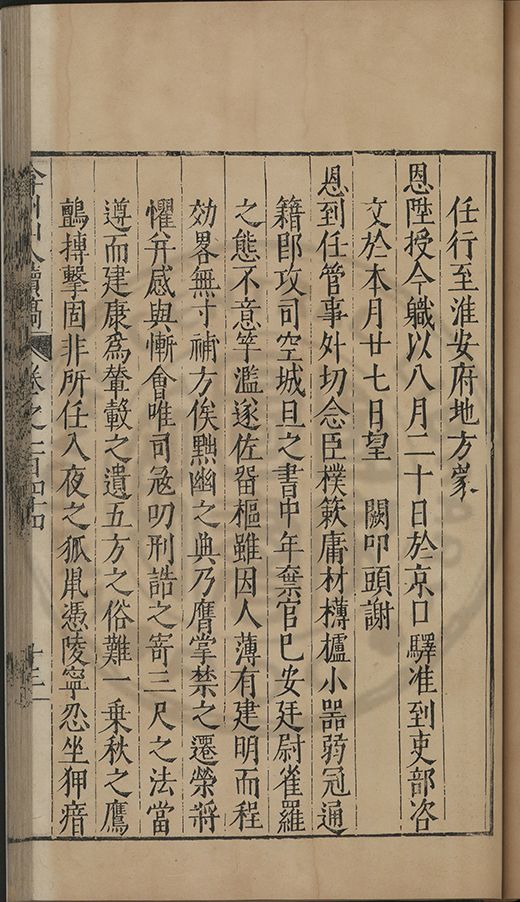 任行至淮安府地方蒙
恩陞授今職以八月二十日於京口驛准到吏部咨
文於本月廿七日望　闕叩頭謝
恩到任管事外切念臣樸簌庸材欂櫨小器弱冠通
籍郎攻司空城旦之書中年棄官巳安廷尉雀羅
之態不意竿濫遂佐畱樞雖因人薄有建明而程
効畧無寸補方俟黜幽之典乃膺掌禁之遷榮將
懼并感與慚會唯司宼叨刑誥之寄三尺之法當
遵而建康爲輦轂之遺五方之俗難一乗秋之鷹
鸇摶擊固非所任入夜之狐鼡憑陵寧忍坐狎瘖
弇州山人續稿　卷之一百四十四